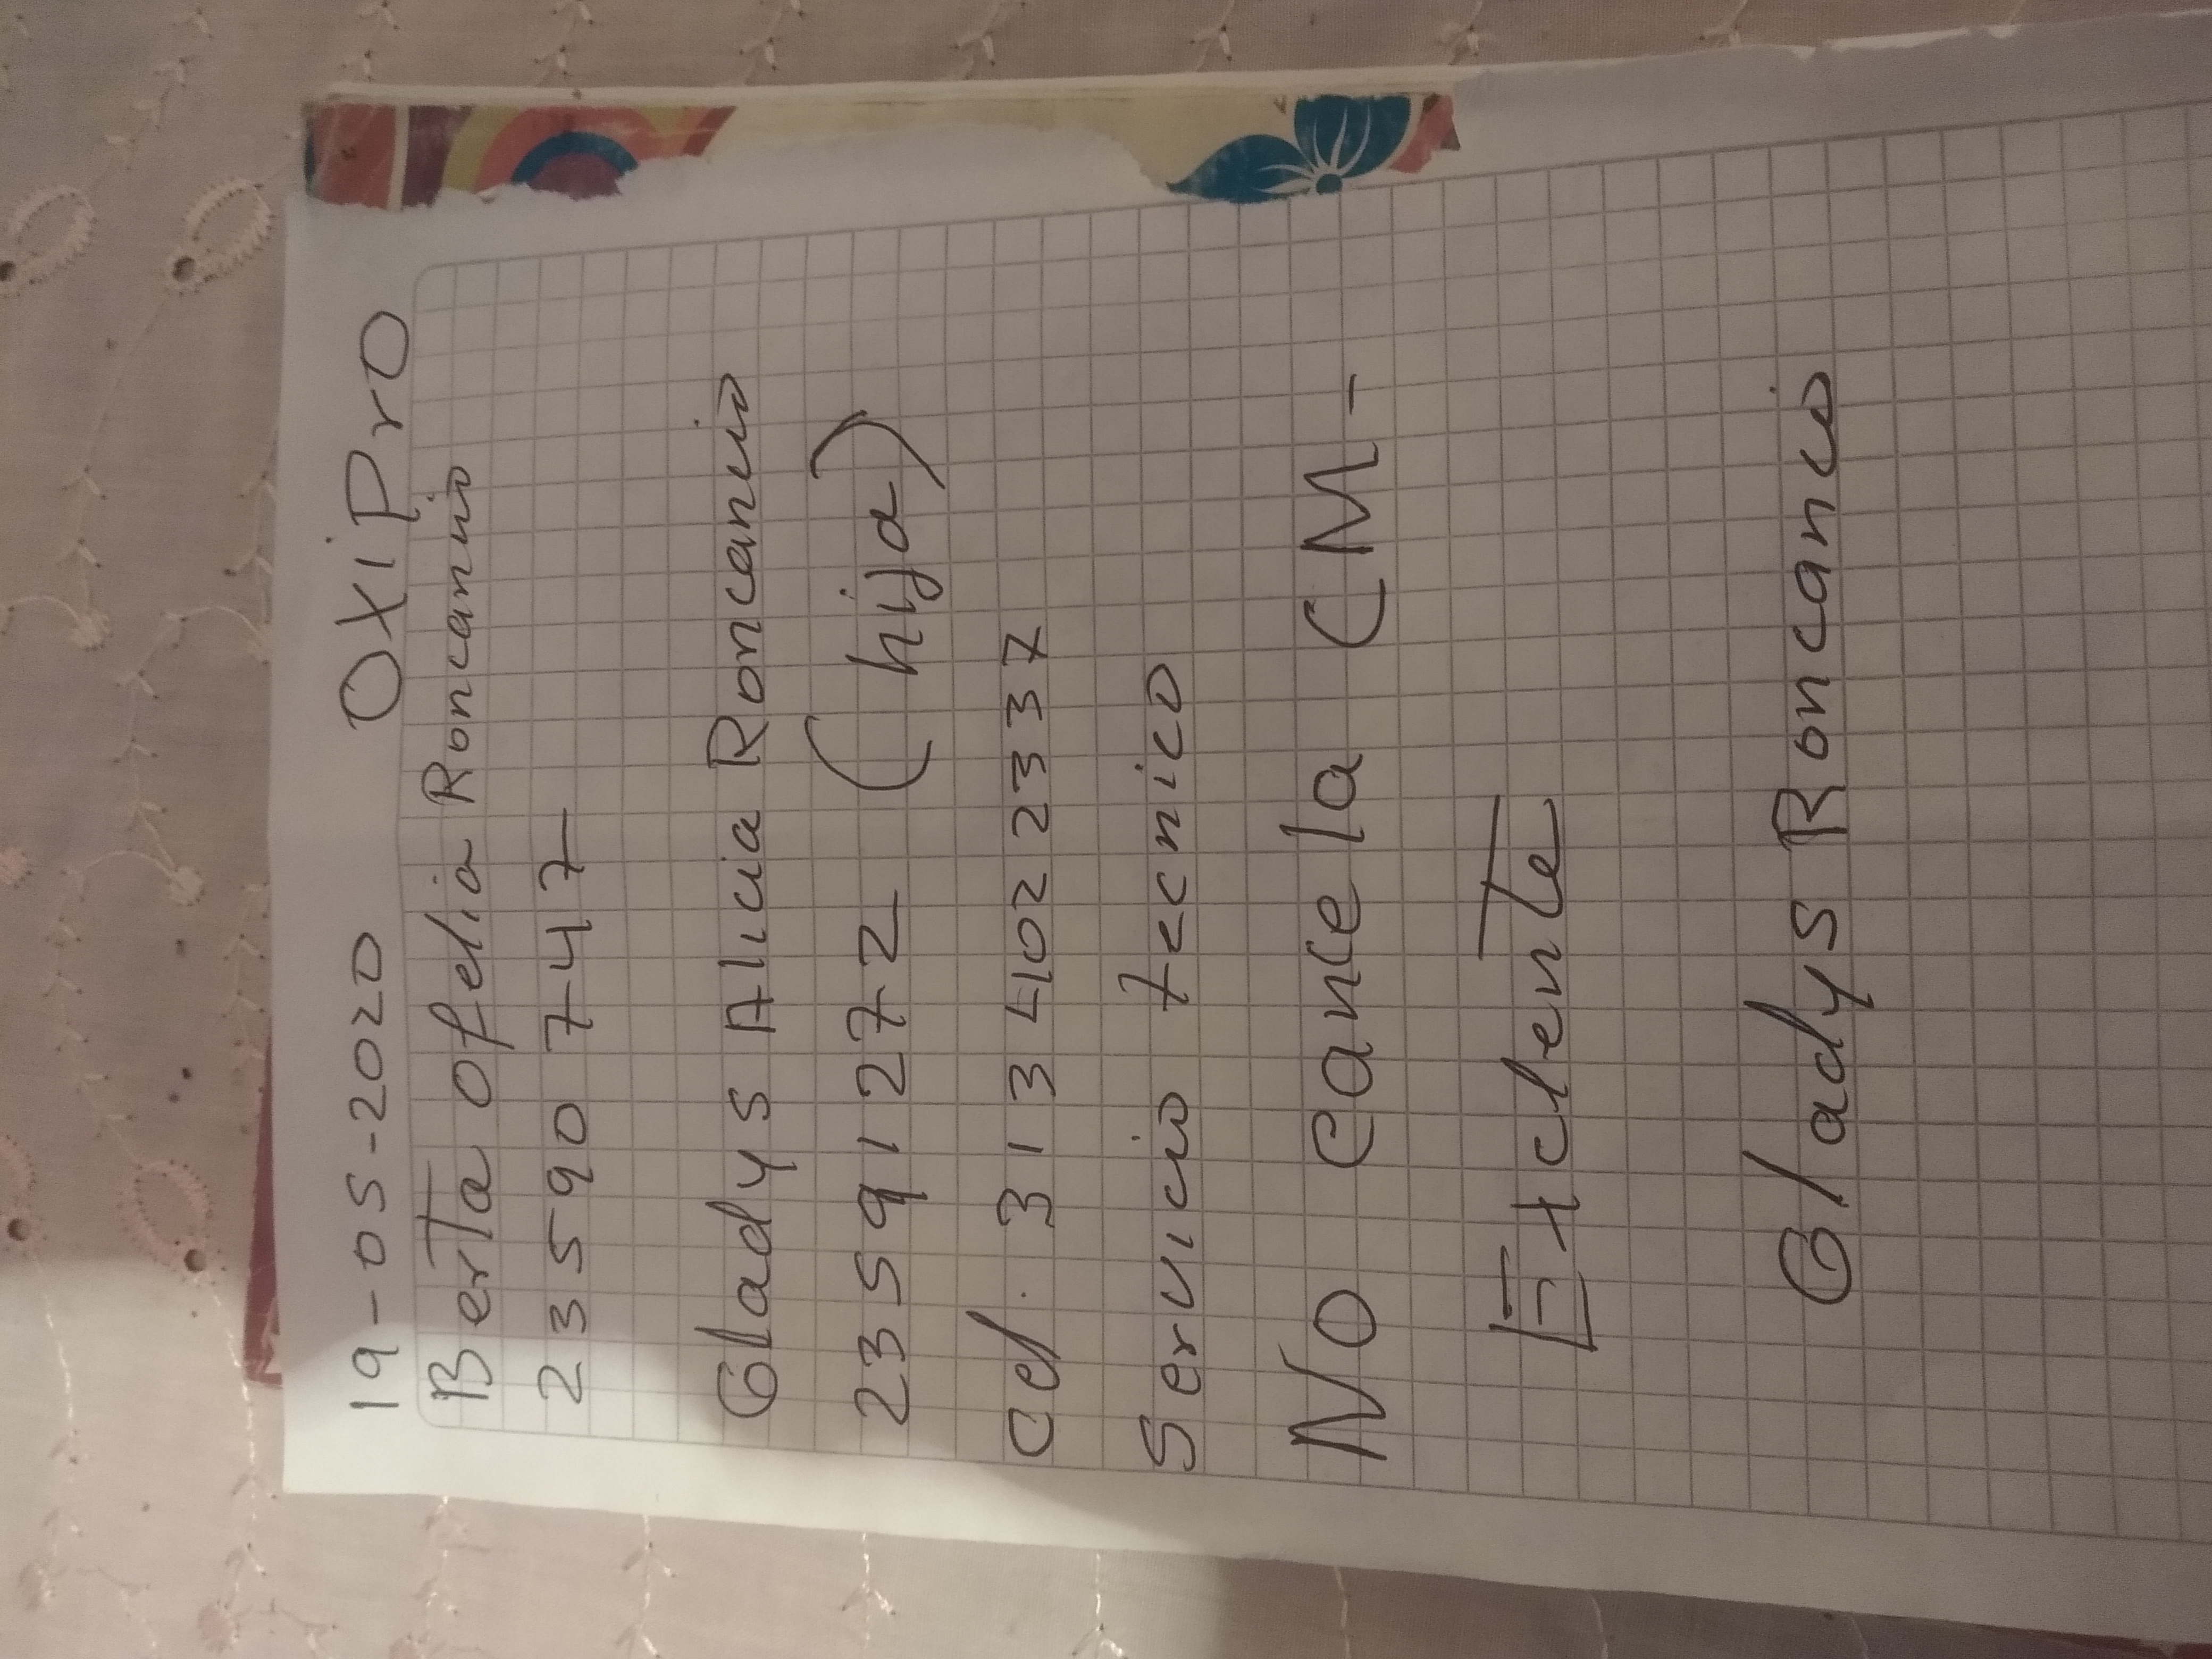 19-05-2020 OXiPrO
Berta Ofelia Roncancio
23590 747
Gladys Alicia Roncancio
23591272 (hija)
cel. 313 402 2337
Servicio tecnico
NO cancela CM-
Exclente
Gladys Roncancio